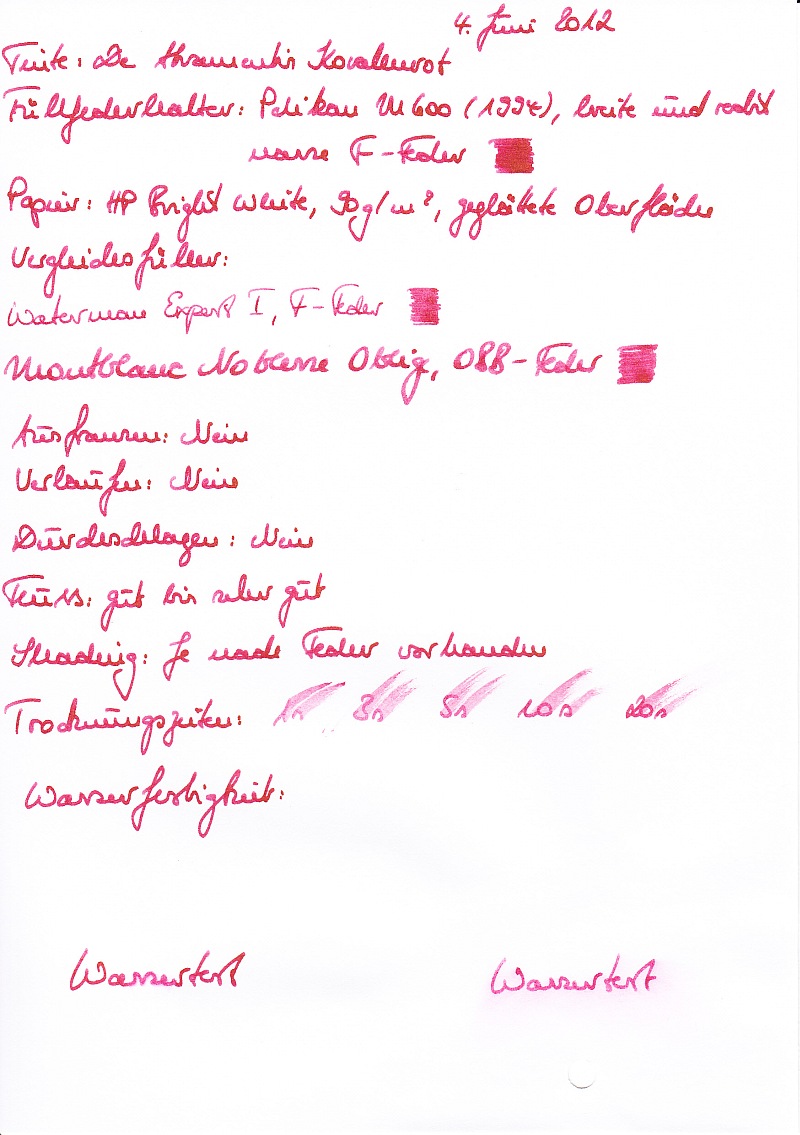 4. Juni 2012
Tinte: De Atramentis Korallenrot
Füllfederhalter: Pelikan M600 (1994), breite und recht
nasse F-Feder
Papier: HP Bright White, 90g/m², geglättete Oberfläche
Vergleichsfüller:
Waterman Expert I, F-Feder
Montblanc Noblesse Oblige, OBB-Feder
Ausfransen: Nein
Verlaufen: Nein
Durchschlagen: Nein
Fluss: gut bis sehr gut
Shading: Je nach Feder vorhanden
Trocknungszeiten: 1s 3s 5s 10s 20s
Wasserfestigkeit:
Wassertest Wassertest